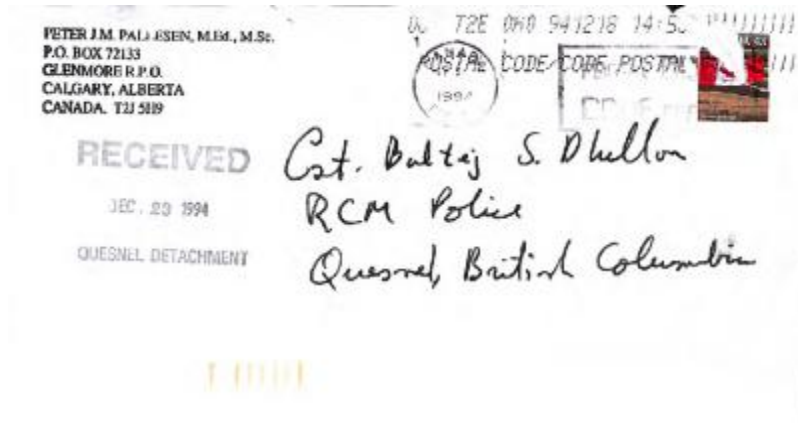 PETER J.M. PALLESEN, M.Ed., M.Sc.
P.O. BOX 72133
GLENMORE R.P.O.
CALGARY, ALBERTA
CANADA. T2J 5H9
T2E 0K0 941218 14:5
POSTAL CODE/CODE POSTAL
1994
RECEIVED
DEC. 23 1994
QUESNEL DETACHMENT
Cst. Baltej S. Dhillon
RCM Police
Quesnel, British Columbia